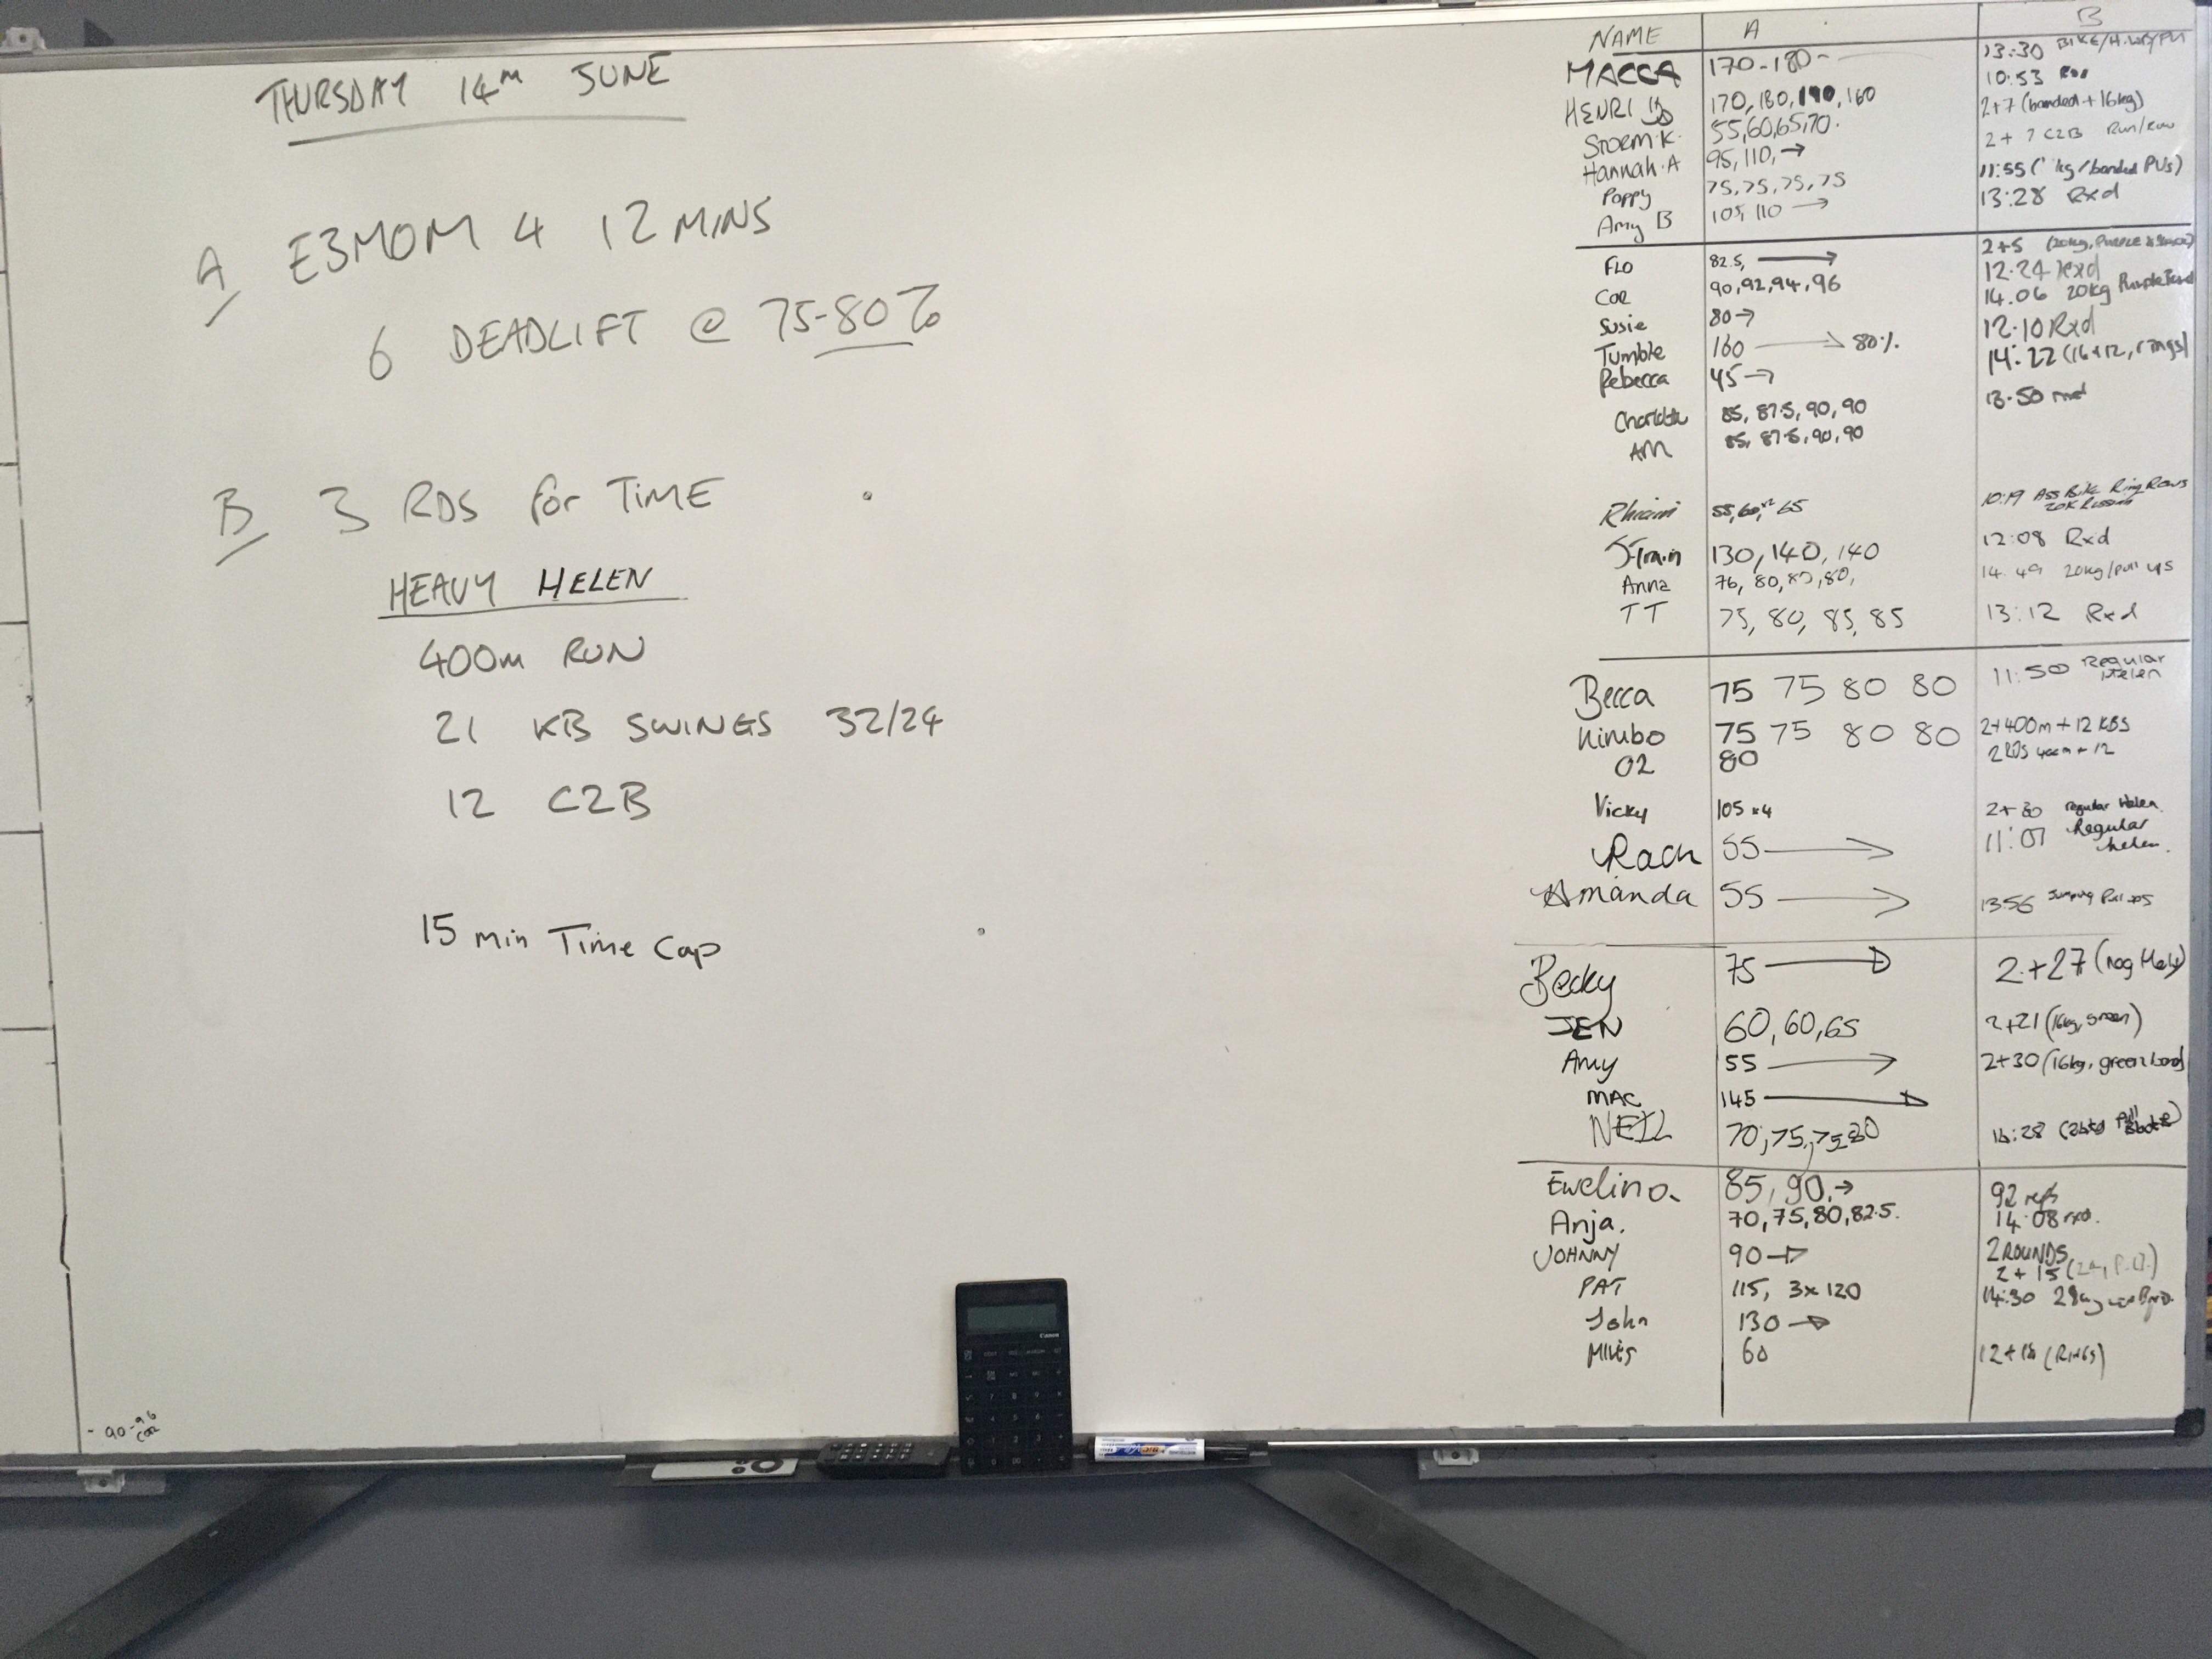 THURSDAY 14TH JUNE
A E3MOM 4 12 MINS
6 DEADLIFT @ 75-80%
B 3 RDS for TIME
HEAVY HELEN
400m RUN
21 KB SWINGS 32/24
12 C2B
15 min Time Cap
- 90-96
COR
NAME A B
MACCA 170-180- 13:30 BIKE/
HENRI 170, 180, 190, 160 10:53
STORM.K. 55,60,65,70. 2+7 (banded + 16kg)
Hannah.A 95, 110, → 2 + 7 C2B Run/Row
Poppy 75, 75, 75, 75 11:55 ( kg/banded PUs)
Amy B 105, 110 → 13:28 Rxd
FLO 82.5, → 2+5 (20kg, PURPLE
COR 90, 92, 94, 96 12:24 Rxd
Susie 80 → 14.06 20kg Purple
Tumble 160 → 80% 12.10 Rxd
Rebecca 45 → 14:22 (16+12, rings)
Charlotte 85, 87.5, 90, 90 13.50 rxd
AM 85, 87.5, 90, 90
55, 60, 65 10:19 Ass Bike Ring Rows
J-Train 130, 140, 140 12:08 Rxd
Anna 76, 80, 80, 80, 14.49 20kg/pull ups
TT 75, 80, 85, 85 13:12 Rxd
Becca 75 75 80 80 11:50 Regular Helen
Kimbo 75 75 80 80 2+400m + 12 KBS
O2 80 2 RDS 400m + 12
Vicky 105 x4 2+30 regular Helen
Rach 55 → 11:07 Regular Helen.
Amanda 55 → 13:56 Jumping Pull ups
Becky 75 → 2+27
JEN 60, 60, 65 2+21 (16kg, green)
Amy 55 → 2+30 (16kg, green band)
MAC 145 →
NEIL 70, 75, 75, 80
Ewelina 85, 90, → 92 reps
Anja. 70, 75, 80, 82.5. 14:08 rxd.
JOHNNY 90 → 2 ROUNDS
PAT 115, 3x120 2+15
John 130 → 14:30
MILES 60 (RINGS)
Canon